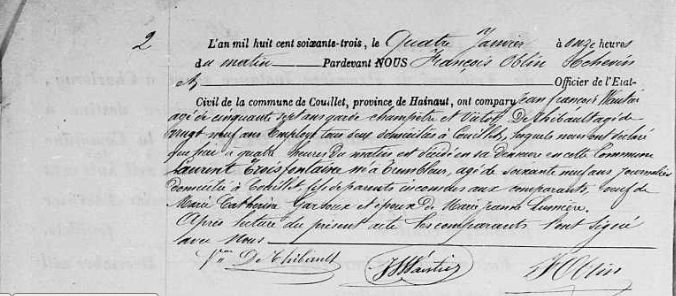 2
L'an mil huit cent soixante-trois, le Quatre Janvier à onze heures
du matin Pardevant NOUS François Oblin Echevin
et Officier de l'Etat-
Civil de la commune de Couillet, province de Hainaut, ont comparu Jean François
agé de cinquante sept ans garde champêtre et Victor De Thibault agé de
vingt neuf ans Employé tous deux domiciliés à Couillet, lesquels nous ont déclaré
que hier à quatre heures du matin est décédé en sa demeure en cette Commune
Laurent Troisfontaine né à Trembleur, agé de soixante neuf ans journalier
domicilié à Couillet fils de parents inconnus aux comparants, veuf de
Marie Catherine et époux de Marie Jeanne Lumière.
Après lecture du présent acte les comparants ont signé
avec Nous
De Thibault
Oblin